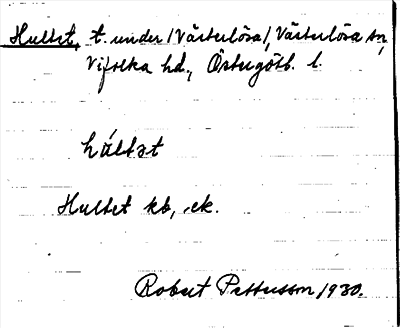 Hultet, t. under /Västerlösa/, Västerlösa sn,
Vifolka hd, Östergötl. l.
húltət
Hultet kb, ek.
Robert Pettersson 1930.